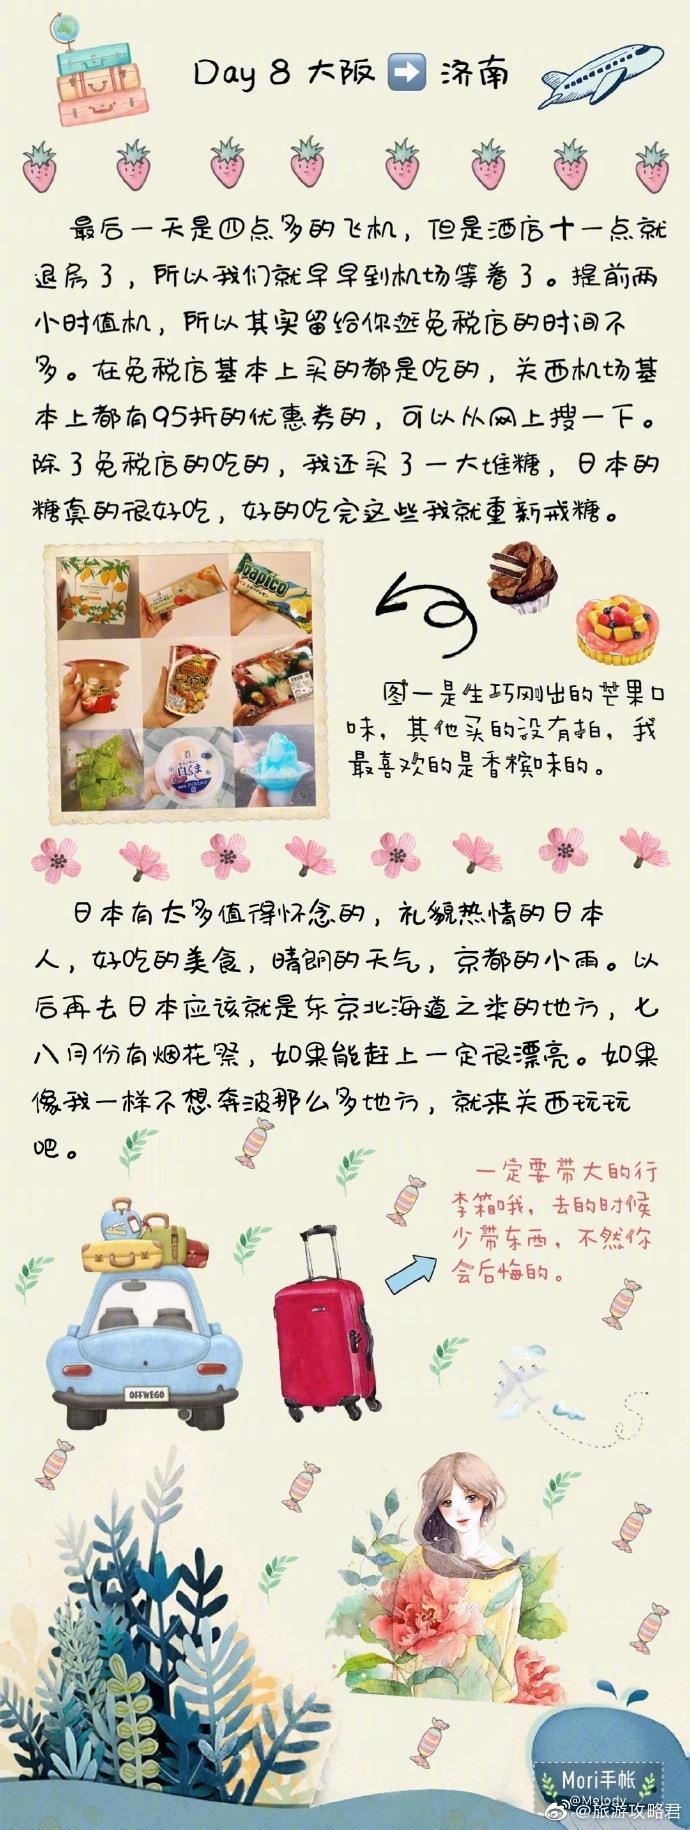 Day 8 大阪 ➡ 济南
最后一天是四点多的飞机，但是酒店十一点就
退房了，所以我们就早早到机场等着了。提前两
小时值机，所以其实留给你逛免税店的时间不
多。在免税店基本上买的都是吃的，关西机场基
本上都有95折的优惠券的，可以从网上搜一下。
除了免税店的吃的，我还买了一大堆糖，日本的
糖真的很好吃，好的吃完这些我就重新戒糖。
Papico
白くま
图一是生巧刚出的芒果口
味，其他买的没有拍，我
最喜欢的是香槟味的。
日本有太多值得怀念的，礼貌热情的日本
人，好吃的美食，晴朗的天气，京都的小雨。以
后再去日本应该就是东京北海道之类的地方，七
八月份有烟花祭，如果能赶上一定很漂亮。如果
像我一样不想奔波那么多地方，就来关西玩玩
吧。
一定要带大的行
李箱哦，去的时候
少带东西，不然你
会后悔的。
OFFWEGO
Mori手帐
@Melody
@旅游攻略君